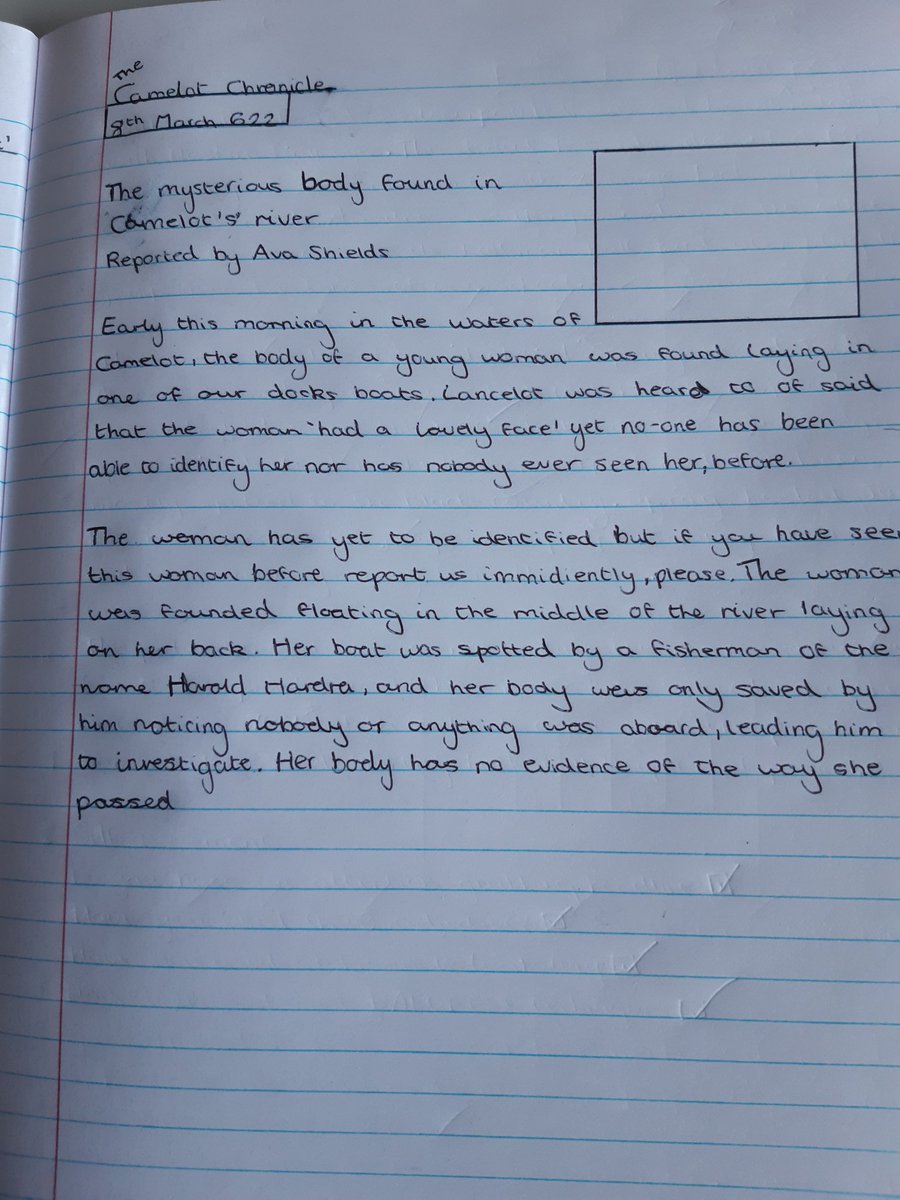 The
Camelot Chronicle
8th March 622
The mysterious body found in
Camelot's river
Reported by Ava Shields
Early this morning in the waters of
Camelot, the body of a young woman was found laying in
one of our docks boats. Lancelot was heard to of said
that the woman 'had a lovely face' yet no-one has been
able to identify her nor has nobody ever seen her, before.
The woman has yet to be identified but if you have seen
this woman before report us immidiently, please. The woman
was founded floating in the middle of the river laying
on her back. Her boat was spotted by a fisherman of the
name Harold Hardra, and her body was only saved by
him noticing nobody or anything was aboard, leading him
to investigate. Her body has no evidence of the way she
passed